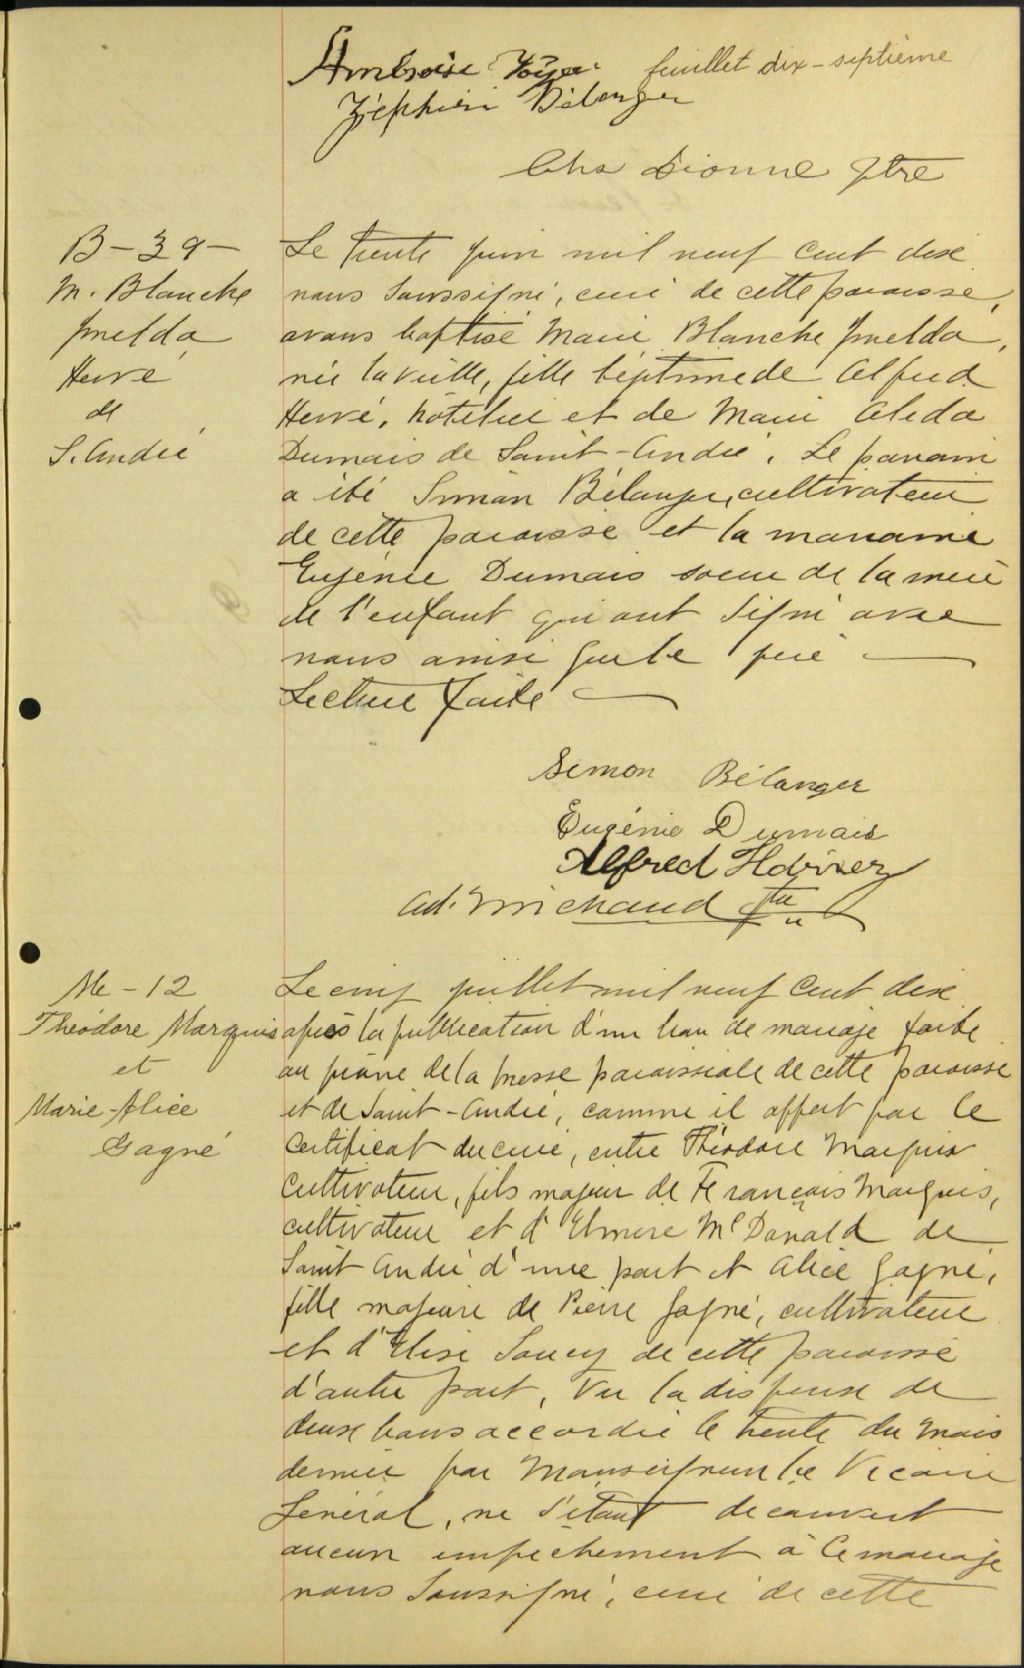 Ambroise feuillet dix-septième
Zéphirin Bélanger
Chs Dionne Ptre
B-39-
M. Blanche
Imelda
Hervé
de
S. André
Le trente juin mil neuf cent dix
nous soussigné, curé de cette paroisse,
avons baptisé Marie Blanche Imelda,
née la veille, fille légitime de Alfred
Hervé, hôtelier et de Marie Aleda
Dumais de Saint-André. Le parrain
a été Simon Bélanger, cultivateur
de cette paroisse et la marraine
Eugénie Dumais soeur de la mère
de l'enfant qui ont signé avec
nous ainsi que le père
Lecture faite
Simon Bélanger
Eugénie Dumais
Alfred
Ad. Michaud Ptre
M-12
Théodore Marquis
et
Marie-Alice
Gagné
Le cinq juillet mil neuf cent dix
après la publication d'un ban de mariage faite
au prône de la messe paroissiale de cette paroisse
et de Saint-André, comme il appert par le
certificat du curé, entre Théodore Marquis
cultivateur, fils majeur de François Marquis,
cultivateur et d'Elmire McDonald de
Saint André d'une part et Alice Gagné,
fille majeure de Pierre Gagné, cultivateur
et d'Elise Soucy de cette paroisse
d'autre part, Vu la dispense de
deux bans accordée le trente du mois
dernier par Monseigneur le Vicaire
Général, ne s'étant découvert
aucun empêchement à ce mariage
nous soussigné, curé de cette